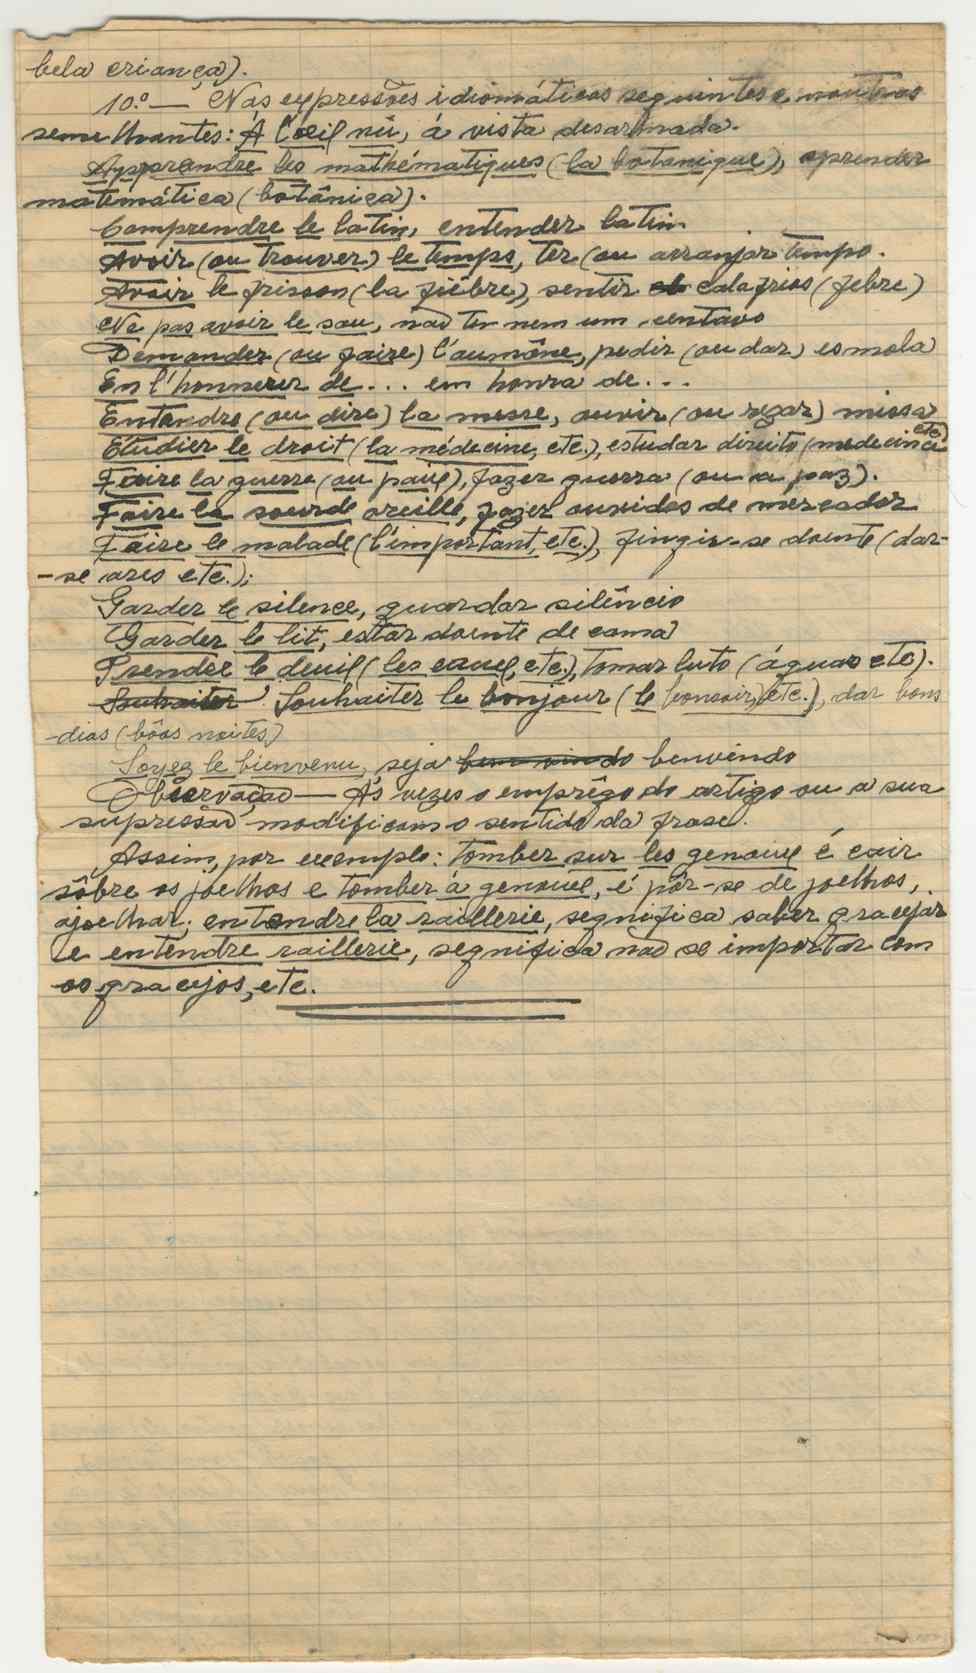 bela criança).
10.º — Nas expressões idiomáticas seguintes e noutras
semelhantes: À l'oeil nû, á vista desarmada.
Apprendre les mathématiques (la botanique), aprender
matemática (botânica).
Comprendre le latin, entender latin.
Avoir (ou trouver) le temps, ter (ou arranjar tempo.
Avoir le frisson (la fiêbre), sentir calafrios (febre)
Ne pas avoir le sou, não ter nem um centavo
Demander (ou faire) l'aumône, pedir (ou dar) esmola
En l'honneur de... em honra de...
Entendre (ou dire) la messe, ouvir (ou rezar) missa
Etudier le droit (la médecine, etc.), estudar direito (medecina etc)
Faire la guerre (ou paix), fazer guerra (ou a paz).
Faire la sourde oreille, fazer ouvidos de mercador
Faire le malade (l'important, etc.), fingir-se doente (dar-
-se ares etc.);
Garder le silence, guardar silêncio
Garder le lit, estar doente de cama
Prendre le deuil (les eaux, etc.), tomar luto (águas etc).
Souhaiter Souhaiter le bonjour (le bonsoir, etc.), dar bons
-dias (bôas noites)
Soyez le bienvenu, seja bem vindo benvindo
Observação — Ás vezes o emprêgo do artigo ou a sua
supressão modificam o sentido da frase.
Assim, por exemplo: tomber sur les genoux é cair
sôbre os joelhos e tomber á genoux, é pôr-se de joelhos,
ajoelhar; entendre la raillerie, segnifica saber gracejar
e entendre raillerie, segnifica não se importar com
os gracejos, etc.